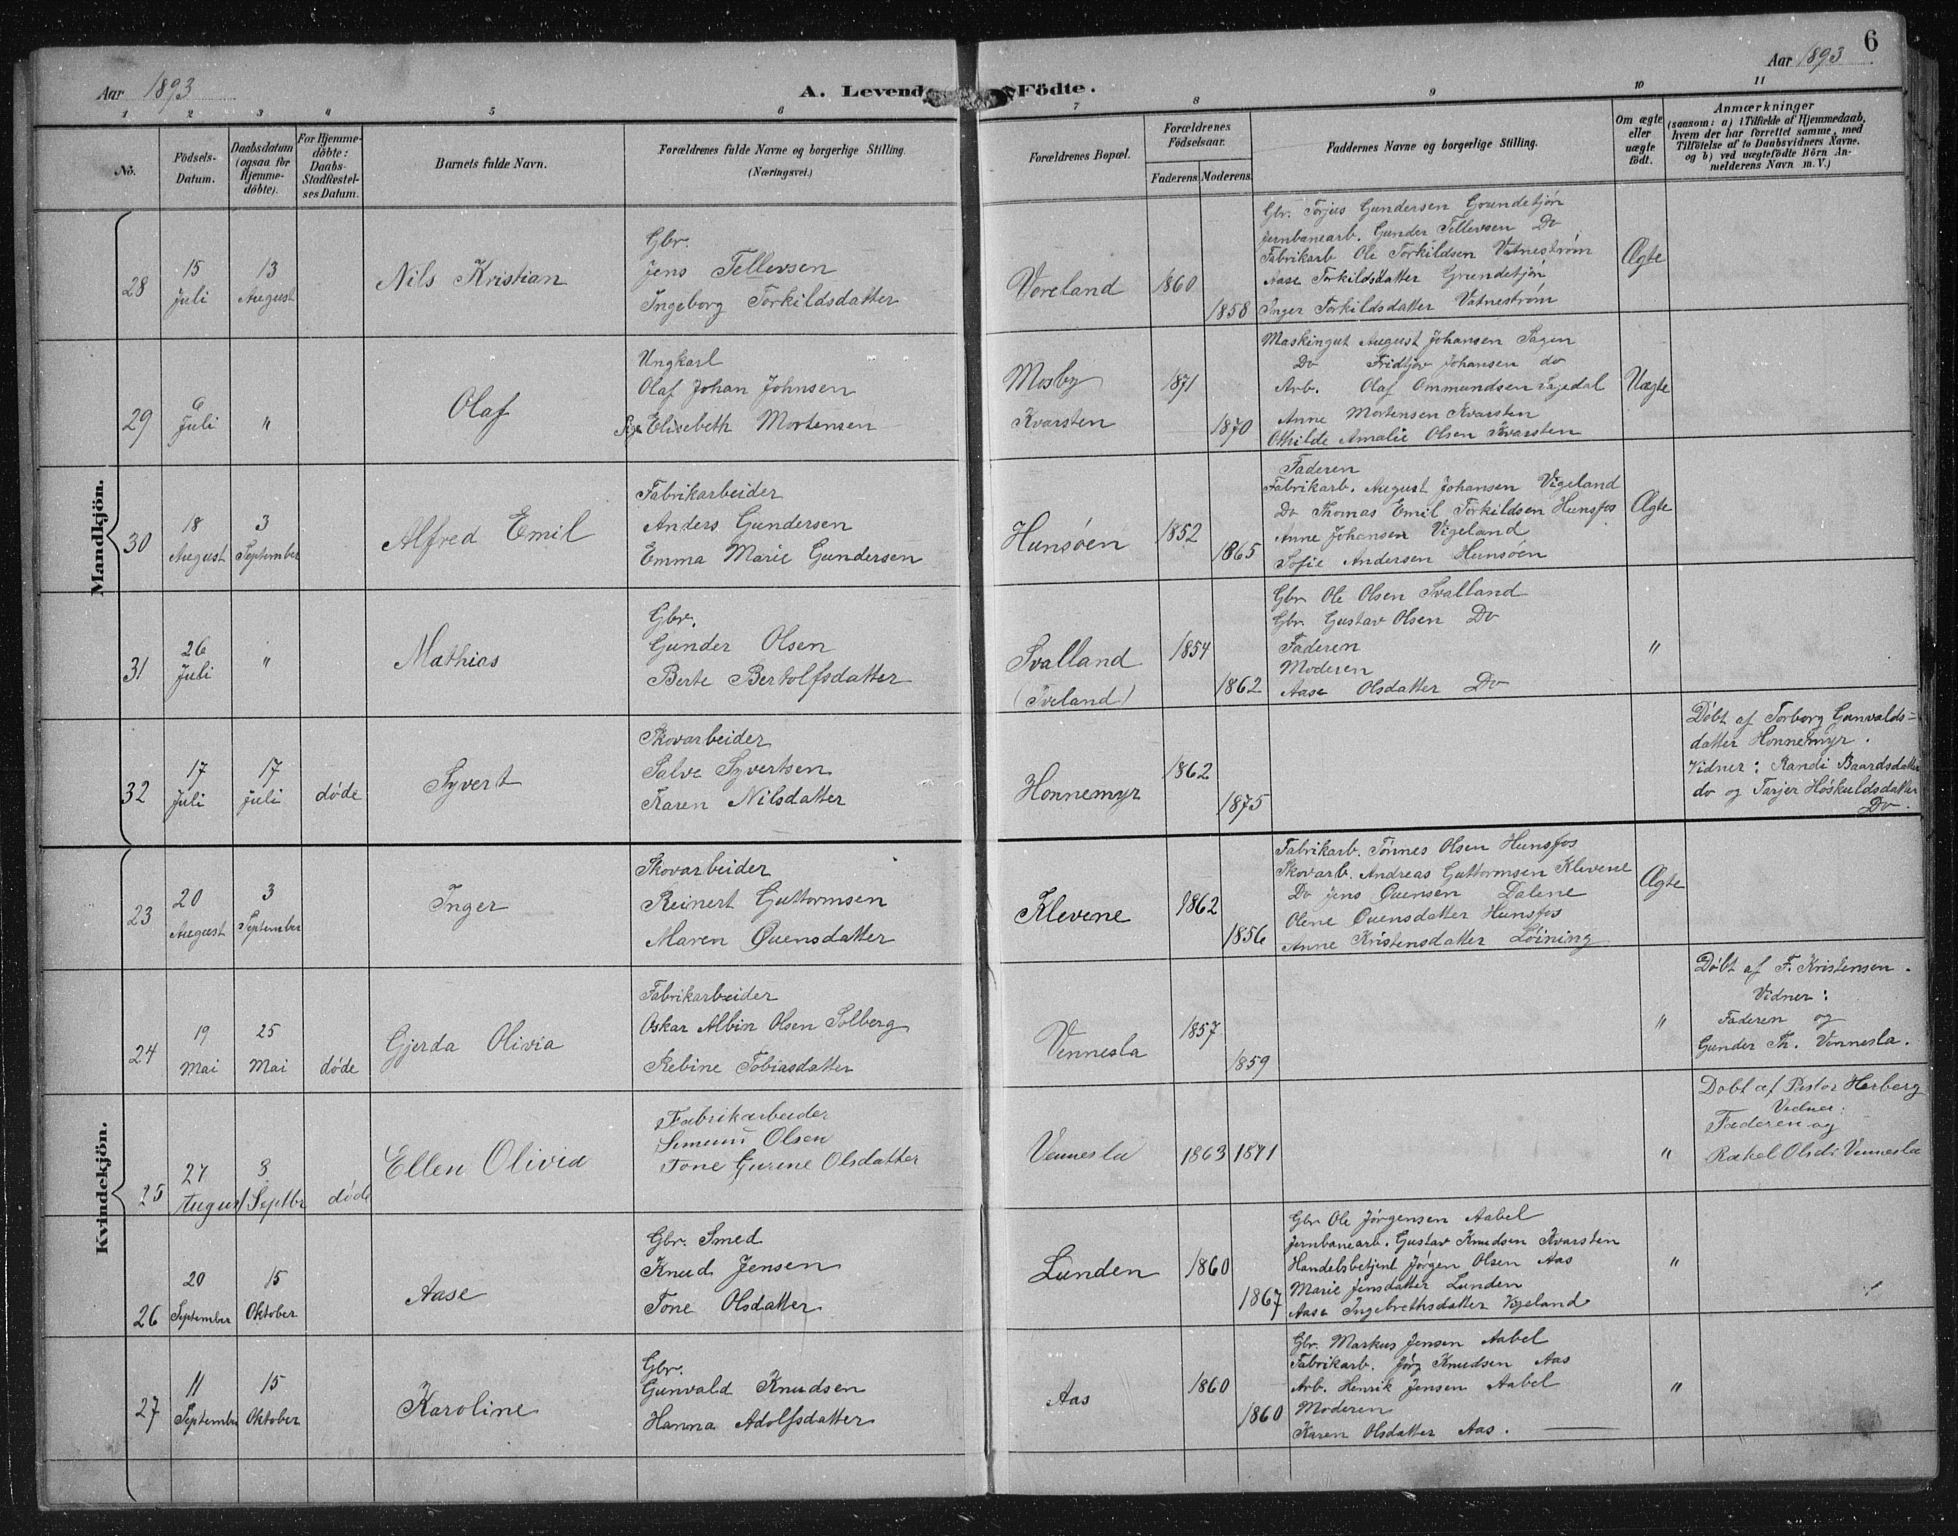 6
Aar 1893
A. Levende Födte.
Aar 1893
1 2 3 4 5 6 7 8 9 10 11
No.
Födsels-
Datum.
Daabsdatum
(ogsaa for
Hjemme-
döbte).
For Hjemme-
döbte:
Daabs-
Stadfæstel-
ses Datum.
Barnets fulde Navn.
Forældrenes fulde Navne og borgerlige Stilling.
(Næringsvei.)
Forældrenes Bopæl.
Forældrenes
Födselsaar.
Faderens. Moderens.
Faddernes Navne og borgerlige Stilling.
Om ægte
eller
uægte
födt.
Anmærkninger
(saasom: a) i Tilfælde af Hjemmedaab,
hvem der har forrettet samme, med
Tilföielse af to Daabsvidners Navne,
og b) ved uægtefödte Börn An-
melderens Navn m. V.)
Mandkjön.
28
15
Juli
13
August
Nils Kristian
Gbr.
Jens Tellevsen
Ingeborg Torkildsdatter
Voreland
1860
1858
Gbr. Torjus Gundersen Grundetjön
Jernbanearb. Gunder Tellevsen Do
Fabrikarb Ole Torkildsen Vatneström
Aase Torkildsdatter Grundetjön
Inger Torkildsdatter Vatneström
Ægte
29
6
Juli
"
Olaf
Ungkarl
Olaf Johan Johnsen
Pige Elisebeth Mortensen
Mosby
Kvarsten
1871
1870
Maskingut August Johansen Sagen
Do Fridtjov Johansen do
Arb. Olaf Ommundsen Sagedal
Anne Mortensen Kvarsten
Othilde Amalie Olsen Kvarsten
Uægte
30
18
August
3
September
Alfred Emil
Fabrikarbeider
Anders Gundersen
Emma Marie Gundersen
Hunsöen
1852
1865
Faderen
Fabrikarb. August Johansen Vigeland
Do Thomas Emil Torkildsen Hunsfos
Anne Johansen Vigeland
Sofie Andersen Hunsöen
Ægte
31
26
Juli
"
Mathias
Gbr.
Gunder Olsen
Berte Bertolfsdatter
Svalland
(Iveland)
1854
1862
Gbr Ole Olsen Svalland
Gbr Gustav Olsen Do
Faderen
Moderen
Aase Olsdatter Do
"
32
17
Juli
17
Juli
døde
Syvert
Skovarbeider
Salve Syvertsen
Karen Nilsdatter
Honnemyr
1862
1875
Döbt af Torborg Gunvalds-
datter Honnemyr.
Vidner: Randi Baardsdatter
do og Tarjer Höskuldsdatter
Do.
Kvindekjön.
23
20
August
3
September
Inger
Skovarbeider
Reinert Guttormsen
Maren Ouensdatter
Klevene
1862
1856
Fabrikarb. Tönnes Olsen Hunsfos
Skovarb. Andreas Guttormsen Klevene
Do Jens Ouensen Dalene
Olene Ouensdatter Hunsfos
Anne Kristensdatter Löining
Ægte
24
19
Mai
25
Mai
døde
Gjerda Olivia
Fabrikarbeider
Oskar Albin Olsen Solberg
Rebine Tobiasdatter
Vennesla
1857
1859
"
Döbt af F. Kristensen.
Vidner:
Faderen og
Gunder Th. Vennesla.
25
27
August
8
Septbr
døde
Ellen Olivia
Fabrikarbeider
Simund Olsen
Tone Gurine Olsdatter
Vennesla
1863 1871
"
Döbt af Pastor Herberg
Vidner:
Faderen og
Rakel Olsd. Vennesla
26
20
September
15
Oktober
Aase
Gbr. Smed
Knud Jensen
Tone Olsdatter
Lunden
1860
1867
Gbr Ole Jörgensen Aabel
Jernbanearb. Gustav Knudsen Kvarsten
Handelsbetjent Jörgen Olsen Aas
Marie Jensdatter Lunden
Aase Ingebrethsdatter Vigeland
"
27
11
September
15
Oktober
Karoline
Gbr.
Gunvald Knudsen
Hanna Adolfsdatter
Aas
1860
1860
Gbr. Markus Jensen Aabel
Fabrikarb. Jörg Knudsen Aas
Arb. Henrik Jensen Aabel
Moderen
Karen Olsdatter Aas.
"